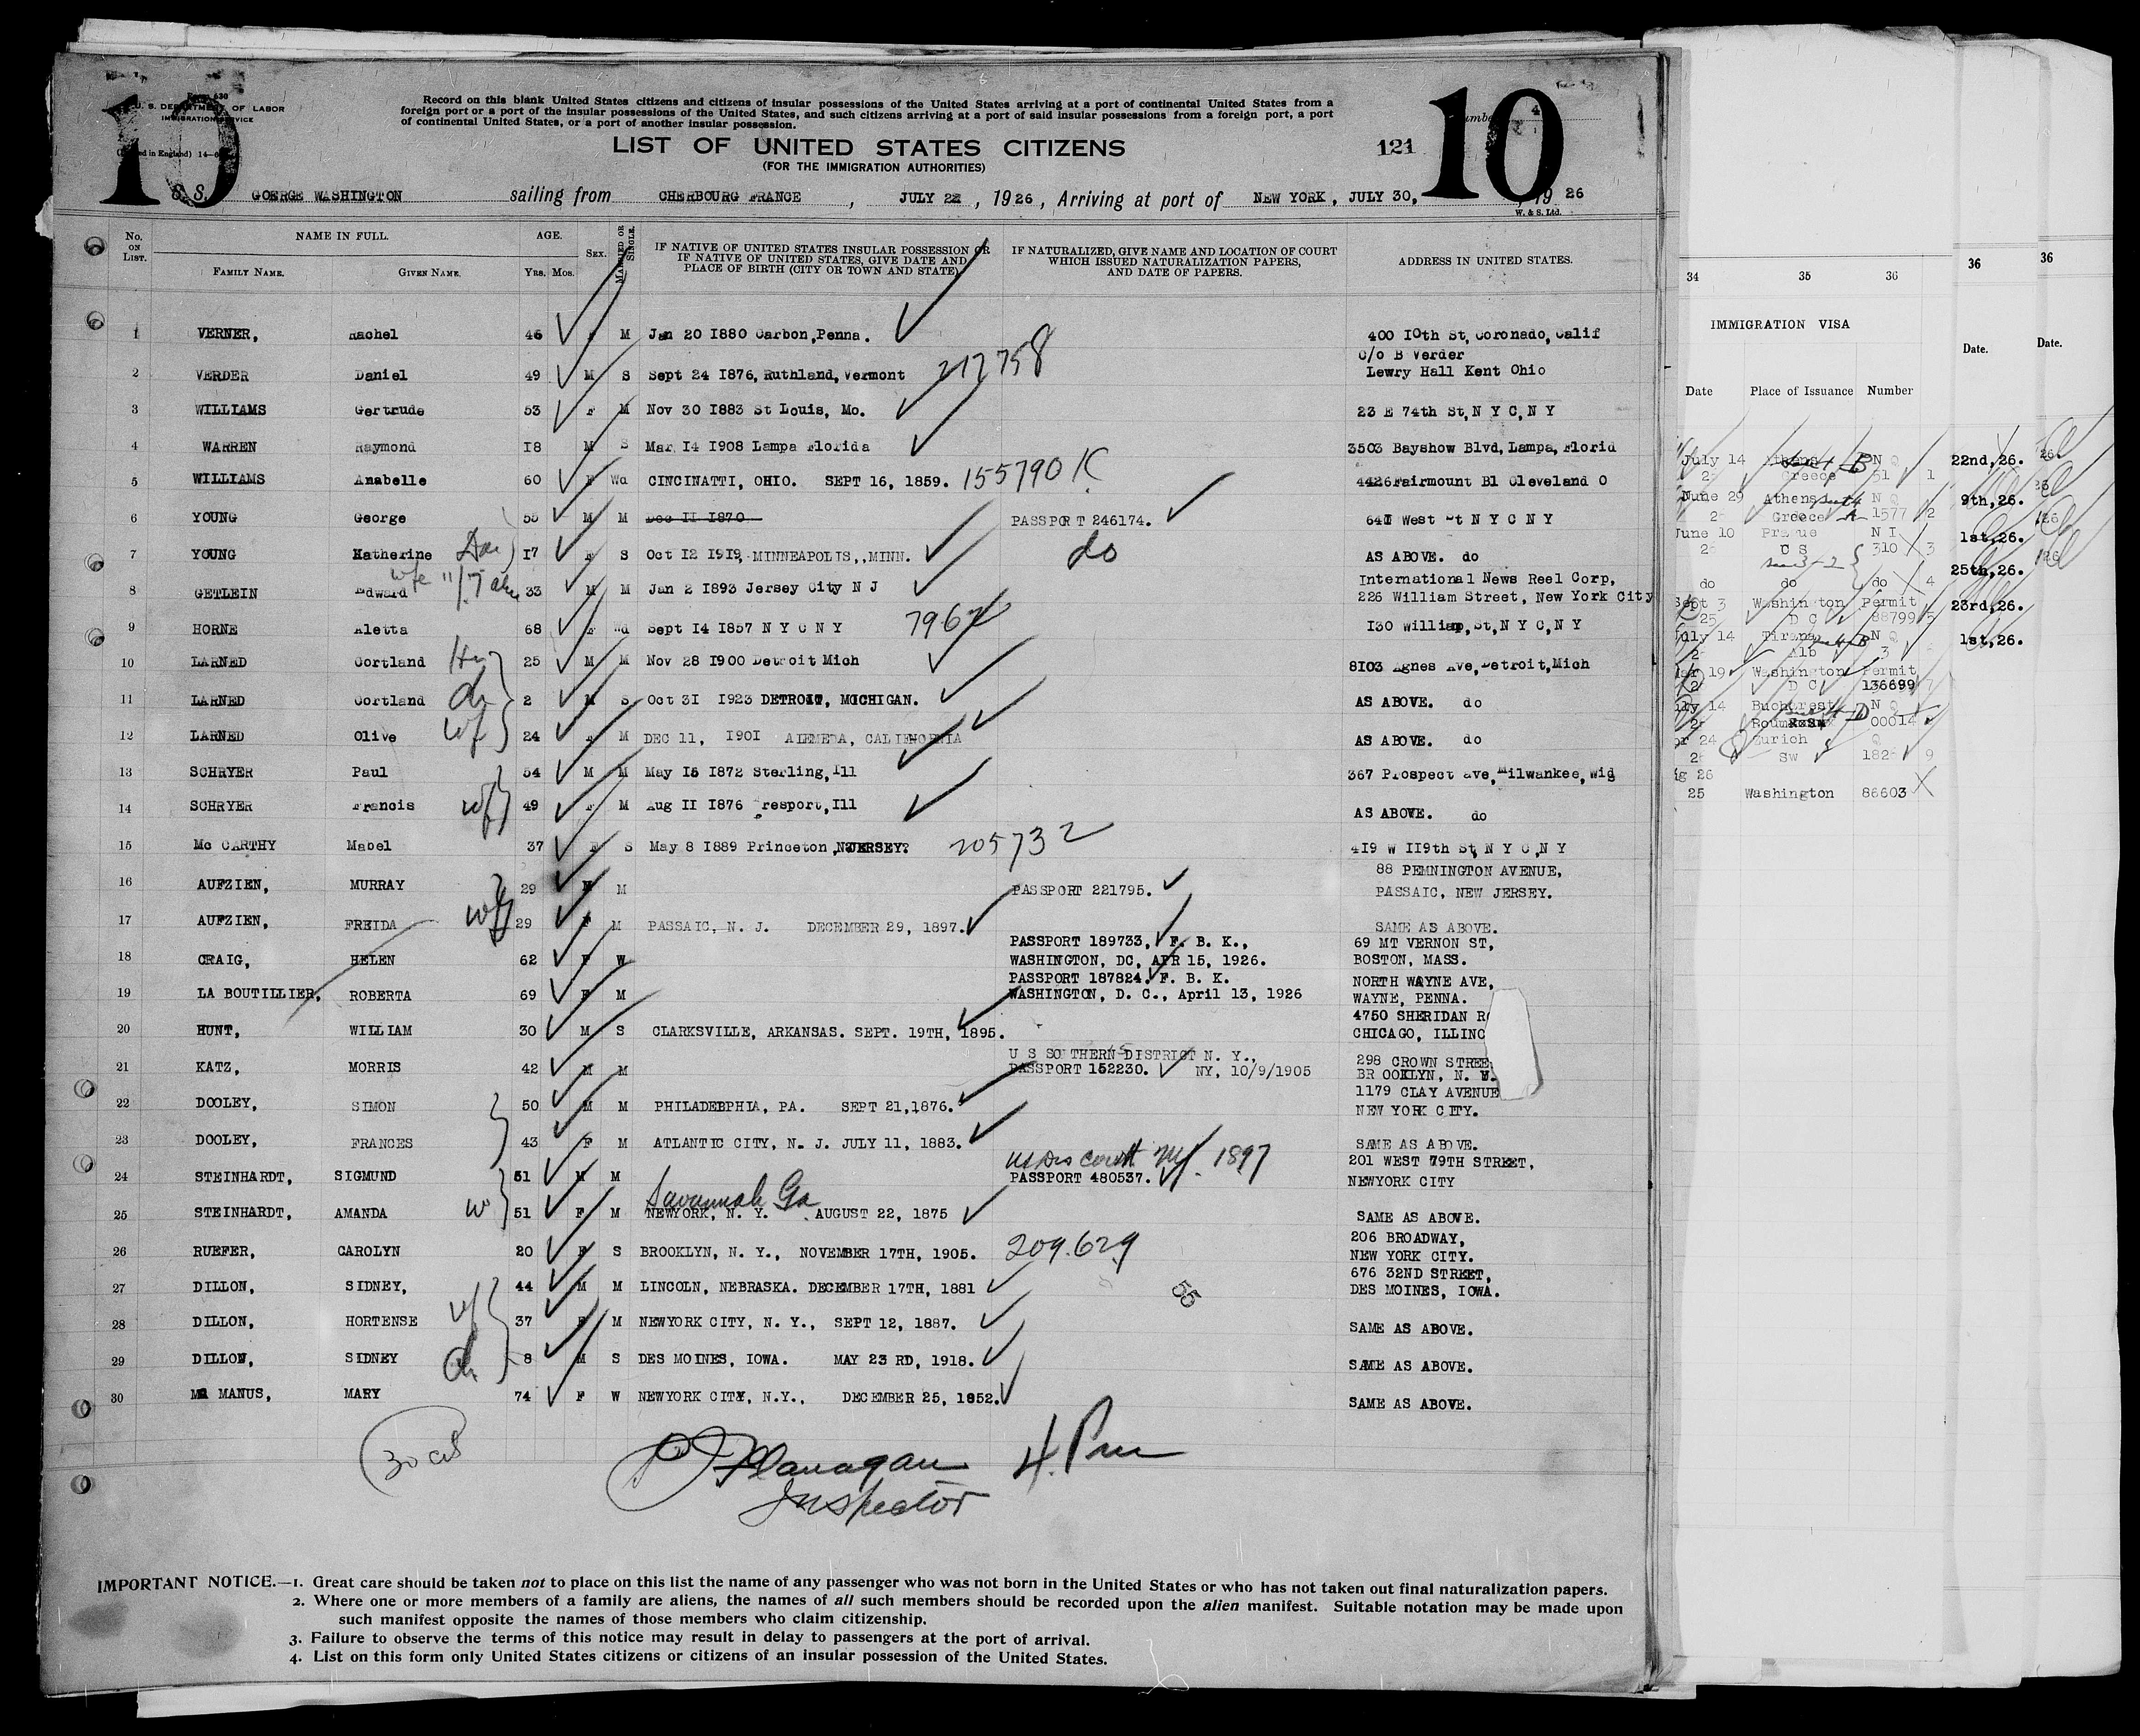 10
Form 630
U. S. DEPARTMENT OF LABOR
IMMIGRATION SERVICE
(Printed in England) 14—
Record on this blank United States citizens and citizens of insular possessions of the United States arriving at a port of continental United States from a
foreign port or a port of the insular possessions of the United States, and such citizens arriving at a port of said insular possessions from a foreign port, a port
of continental United States, or a port of another insular possession.
LIST OF UNITED STATES CITIZENS
(FOR THE IMMIGRATION AUTHORITIES)
121
10
4
S. S. GOERGE WASHINGTON sailing from CHERBOURG FRANCE, JULY 22, 1926, Arriving at port of NEW YORK, JULY 30, 1926
W. & S. Ltd.
No. ON LIST.
NAME IN FULL.
FAMILY NAME. GIVEN NAME.
AGE.
YRS. MOS.
SEX.
MARRIED OR SINGLE.
IF NATIVE OF UNITED STATES INSULAR POSSESSION OR
IF NATIVE OF UNITED STATES, GIVE DATE AND
PLACE OF BIRTH (CITY OR TOWN AND STATE)
IF NATURALIZED, GIVE NAME AND LOCATION OF COURT
WHICH ISSUED NATURALIZATION PAPERS,
AND DATE OF PAPERS.
ADDRESS IN UNITED STATES.
1 VERNER, Rachel 46 F M Jan 20 1880 Carbon,Penna. 400 10th St, Coronado, Calif
2 VERDER Daniel 49 M S Sept 24 1876, Ruthland, Vermont 217758 C/o B Verder
Lewry Hall Kent Ohio
3 WILLIAMS Gertrude 53 F M Nov 30 1883 St Louis, Mo. 23 E 74th St,N Y C,N Y
4 WARREN Raymond 18 M S Mar 14 1908 Lampa Florida 3503 Bayshow Blvd, Lampa, Florid
5 WILLIAMS Anabelle 60 F Wd CINCINATTI, OHIO. SEPT 16, 1859. 155790 K 4426 Fairmount Bl Cleveland O
6 YOUNG George 55 M M Dec 11 1870 PASSPORT 246174. 641 West St N Y C N Y
7 YOUNG Katherine Dau 17 F S Oct 12 1919, MINNEAPOLIS,,MINN. do AS ABOVE. do
8 GETLEIN Edward 33 M M Jan 2 1893 Jersey City N J International News Reel Corp,
226 William Street, New York City
9 HORNE Aletta 68 F Wd Sept 14 1857 N Y C N Y 130 William,St,N Y C,N Y
10 LARNED Cortland 25 M M Nov 28 1900 Detroit Mich 8103 Agnes Ave,Detroit,Mich
11 LARNED Cortland ch 2 M S Oct 31 1923 DETROIT, MICHIGAN. AS ABOVE. do
12 LARNED Olive wf 24 F M DEC 11, 1901 ALEMEDA, CALIFORNIA AS ABOVE. do
13 SCHRYER Paul 54 M M May 15 1872 Sterling,Ill 367 Prospect ave,Milwankee, Wig
14 SCHRYER Francis wf 49 F M Aug 11 1876 Fresport,Ill AS ABOVE. do
15 Mc CARTHY Mabel 37 F S May 8 1889 Princeton,N.JERSEY. 205732 419 W 119th St N Y C,N Y
16 AUFZIEN, MURRAY 29 M M PASSPORT 221795. 88 PENNINGTON AVENUE,
PASSAIC, NEW JERSEY.
17 AUFZIEN, FREIDA wf 29 F M PASSAIC, N. J. DECEMBER 29, 1897. SAME AS ABOVE.
18 CRAIG, HELEN 62 F W PASSPORT 189733, F. B. K.,
WASHINGTON, DC, APR 15, 1926. 69 MT VERNON ST,
BOSTON, MASS.
19 LA BOUTILLIER, ROBERTA 69 F M PASSPORT 187824. F. B. K.
WASHINGTON, D. C., April 13, 1926 NORTH WAYNE AVE,
WAYNE, PENNA.
20 HUNT, WILLIAM 30 M S CLARKSVILLE, ARKANSAS. SEPT. 19TH, 1895. 4750 SHERIDAN R
CHICAGO, ILLINO
21 KATZ, MORRIS 42 M M U S SOUTHERN DISTRICT N. Y.,
PASSPORT 152230. NY, 10/9/1905 298 CROWN STREE
BROOKLYN, N. Y.
22 DOOLEY, SIMON 50 M M PHILADEPHIA, PA. SEPT 21,1876. 1179 CLAY AVENUE
NEW YORK CITY.
23 DOOLEY, FRANCES 43 F M ATLANTIC CITY, N. J. JULY 11, 1883. SAME AS ABOVE.
24 STEINHARDT, SIGMUND 51 M M US Dis Court NY. 1897
PASSPORT 480537. 201 WEST 79TH STREET,
NEWYORK CITY
25 STEINHARDT, AMANDA w 51 F M Savannah Ga
NEWYORK, N. Y. AUGUST 22, 1875 SAME AS ABOVE.
26 RUEFER, CAROLYN 20 F S BROOKLYN, N. Y., NOVEMBER 17TH, 1905. 209.629 206 BROADWAY,
NEW YORK CITY.
27 DILLON, SIDNEY, 44 M M LINCOLN, NEBRASKA. DECEMBER 17TH, 1881 55 676 32ND STREET,
DES MOINES, IOWA.
28 DILLON, HORTENSE wf 37 F M NEWYORK CITY, N. Y., SEPT 12, 1887. SAME AS ABOVE.
29 DILLON, SIDNEY ch 8 M S DES MOINES, IOWA. MAY 23 RD, 1918. SAME AS ABOVE.
30 Mc MANUS, MARY 74 F W NEWYORK CITY, N.Y., DECEMBER 25, 1852. SAME AS ABOVE.
30
P J Flanagan 4. Pm
Inspector
IMPORTANT NOTICE.—1. Great care should be taken not to place on this list the name of any passenger who was not born in the United States or who has not taken out final naturalization papers.
2. Where one or more members of a family are aliens, the names of all such members should be recorded upon the alien manifest. Suitable notation may be made upon
such manifest opposite the names of those members who claim citizenship.
3. Failure to observe the terms of this notice may result in delay to passengers at the port of arrival.
4. List on this form only United States citizens or citizens of an insular possession of the United States.
34 35 36
IMMIGRATION VISA
Date Place of Issuance Number
July 14 Athens N Q
Greece 51 1
June 29 Athens N Q
Greece 1577 2
June 10 Prague N I
C S 310 3
do do do 4
Sept 3 Washington Permit
25 D C 88799 5
July 14 Tirana N Q
Alb 3
Mar 19 Washington Permit
D C 136699 7
July 14 Bucharest N Q
Roum 00014
Zurich Q
SW 1826 9
26
25 Washington 86603
36
Date.
22nd,26.
9th,26.
1st,26.
25th,26.
23rd,26.
1st,26.
36
Date.